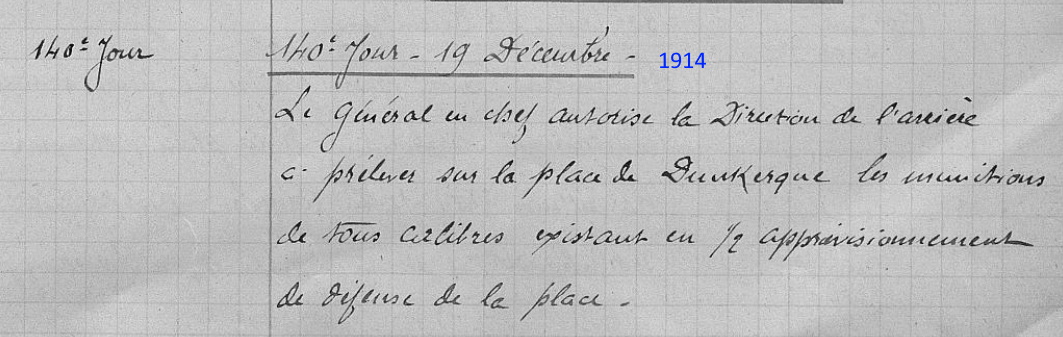 140e Jour
140e Jour - 19 Décembre - 1914
Le Général en chef autorise la Direction de l'arrière
à prélever sur la place de Dunkerque les munitions
de tous calibres existant en 1/2 approvisionnement
de défense de la place -